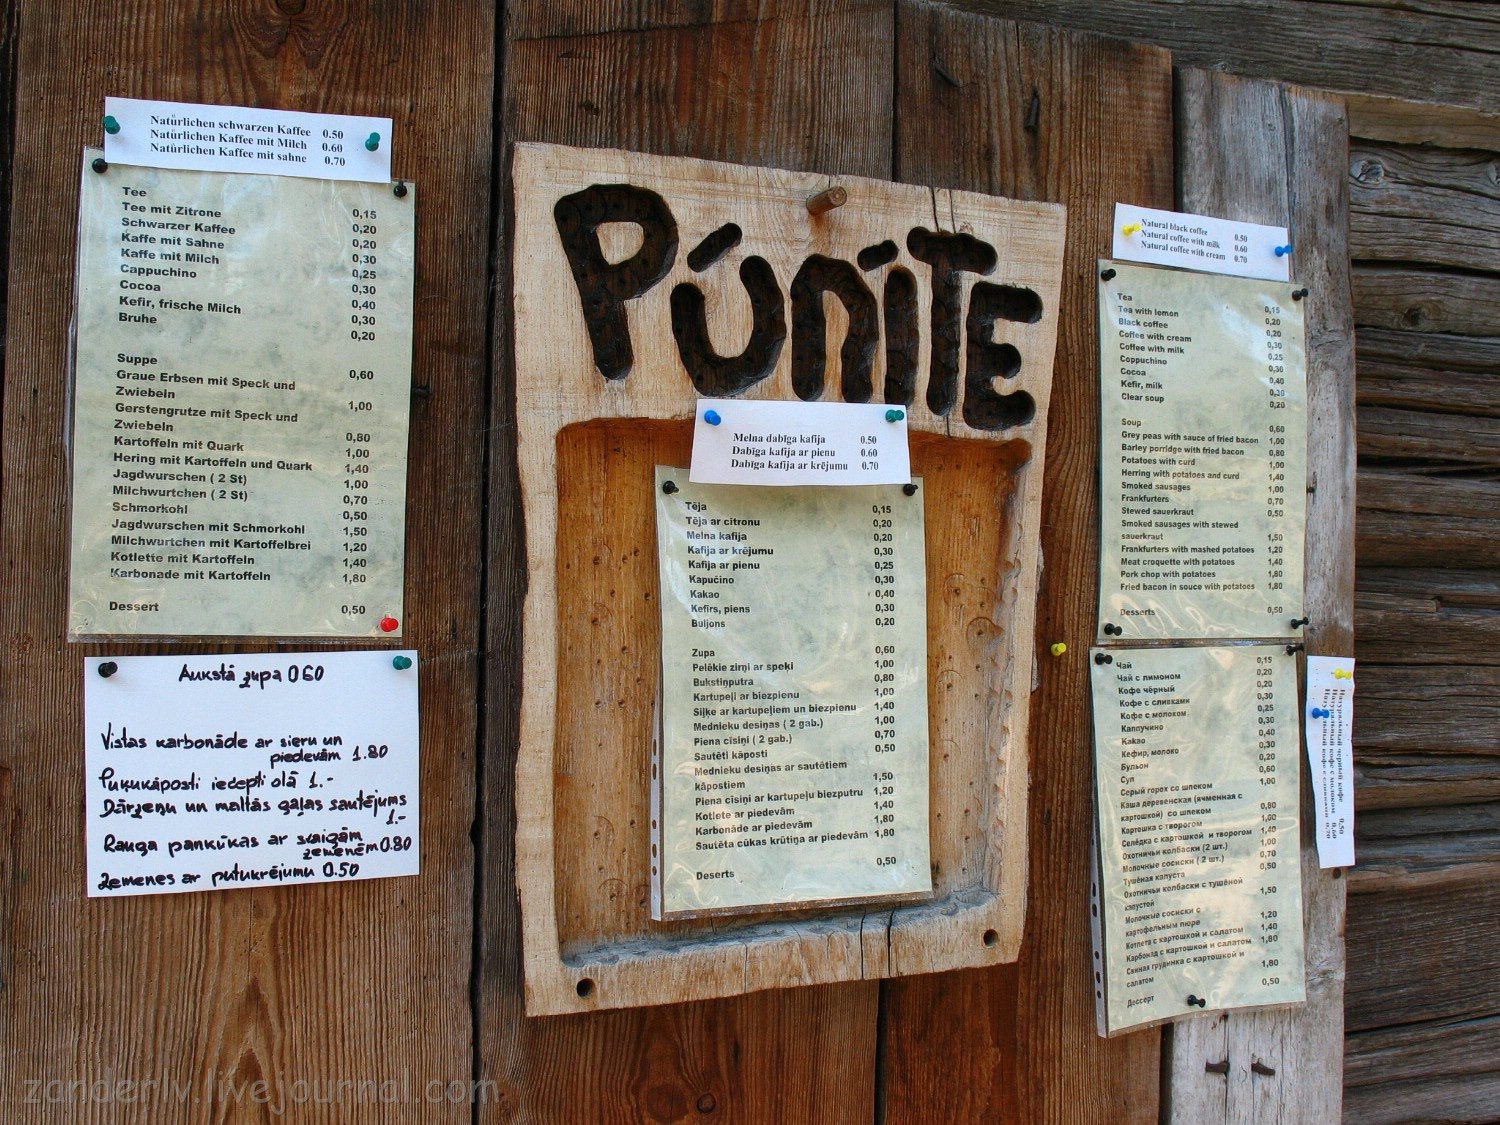 Natürlichen schwarzen Kaffee 0.50
Natürlichen Kaffee mit Milch 0.60
Natürlichen Kaffee mit sahne 0.70
Tee
Tee mit Zitrone 0,15
Schwarzer Kaffee 0,20
Kaffe mit Sahne 0,20
Kaffe mit Milch 0,30
Cappuchino 0,25
Cocoa 0,30
Kefir, frische Milch 0,40
Bruhe 0,30
0,20
Suppe
Graue Erbsen mit Speck und 0,60
Zwiebeln
Gerstengrutze mit Speck und 1,00
Zwiebeln
Kartoffeln mit Quark 0,80
Hering mit Kartoffeln und Quark 1,00
Jagdwurschen ( 2 St) 1,40
Milchwurtchen ( 2 St) 1,00
Schmorkohl 0,70
Jagdwurschen mit Schmorkohl 0,50
Milchwurtchen mit Kartoffelbrei 1,50
Kotlette mit Kartoffeln 1,20
Karbonade mit Kartoffeln 1,40
1,80
Dessert 0,50
Aukstā zupa 0 60
Vistas karbonāde ar sieru un
piedevām 1.80
Puķukāposti iecepti olā 1.-
Dārzeņu un maltās gaļas sautējums
1.-
Rauga pankūkas ar svaigām
zemenēm 0.80
Zemenes ar putukrējumu 0.50
PŪNĪTE
Melna dabīga kafija 0.50
Dabīga kafija ar pienu 0.60
Dabīga kafija ar krējumu 0.70
Tēja 0,15
Tēja ar citronu 0,20
Melna kafija 0,20
Kafija ar krējumu 0,30
Kafija ar pienu 0,25
Kapučino 0,30
Kakao 0,40
Kefīrs, piens 0,30
Buljons 0,20
Zupa 0,60
Pelēkie zirņi ar speķi 1,00
Bukstiņputra 0,80
Kartupeļi ar biezpienu 1,00
Siļķe ar kartupeļiem un biezpienu 1,40
Mednieku desiņas ( 2 gab.) 1,00
Piena cīsiņi ( 2 gab.) 0,70
Sautēti kāposti 0,50
Mednieku desiņas ar sautētiem
kāpostiem 1,50
Piena cīsiņi ar kartupeļu biezputru 1,20
Kotlete ar piedevām 1,40
Karbonāde ar piedevām 1,80
Sautēta cūkas krūtiņa ar piedevām 1,80
Deserts 0,50
Natural black coffee 0.50
Natural coffee with milk 0.60
Natural coffee with cream 0.70
Tea 0,15
Tea with lemon 0,20
Black coffee 0,20
Coffee with cream 0,30
Coffee with milk 0,25
Coppuchino 0,30
Cocoa 0,40
Kefir, milk 0,30
Clear soup 0,20
Soup 0,60
Grey peas with sauce of fried bacon 1,00
Barley porridge with fried bacon 0,80
Potatoes with curd 1,00
Herring with potatoes and curd 1,40
Smoked sausages 1,00
Frankfurters 0,70
Stewed sauerkraut 0,50
Smoked sausages with stewed
sauerkraut 1,50
Frankfurters with mashed potatoes 1,20
Meat croquette with potatoes 1,40
Pork chop with potatoes 1,80
Fried bacon in souce with potatoes 1,80
Desserts 0,50
Чай 0,15
Чай с лимоном 0,20
Кофе чёрный 0,20
Кофе с сливками 0,30
Кофе с молоком 0,25
Каппучино 0,30
Какао 0,40
Кефир, молоко 0,30
Бульон 0,20
Суп 0,60
Серый горох со шпеком 1,00
Каша деревенская (ячменная с
картошкой) со шпеком 0,80
Картошка с творогом 1,00
Селёдка с картошкой и творогом 1,40
Охотничьи колбаски (2 шт.) 1,00
Молочные сосиски ( 2 шт.) 0,70
Тушёная капуста 0,50
Охотничьи колбаски с тушёной
капустой 1,50
Молочные сосиски с
картофельным пюре 1,20
Котлета с картошкой и салатом 1,40
Карбонад с картошкой и салатом 1,80
Свиная грудинка с картошкой и
салатом 1,80
Дессерт 0,50
Натуральный черный кофе 0.50
Натуральный кофе с молоком 0.60
Натуральный кофе с сливками 0.70
zanderlv.livejournal.com